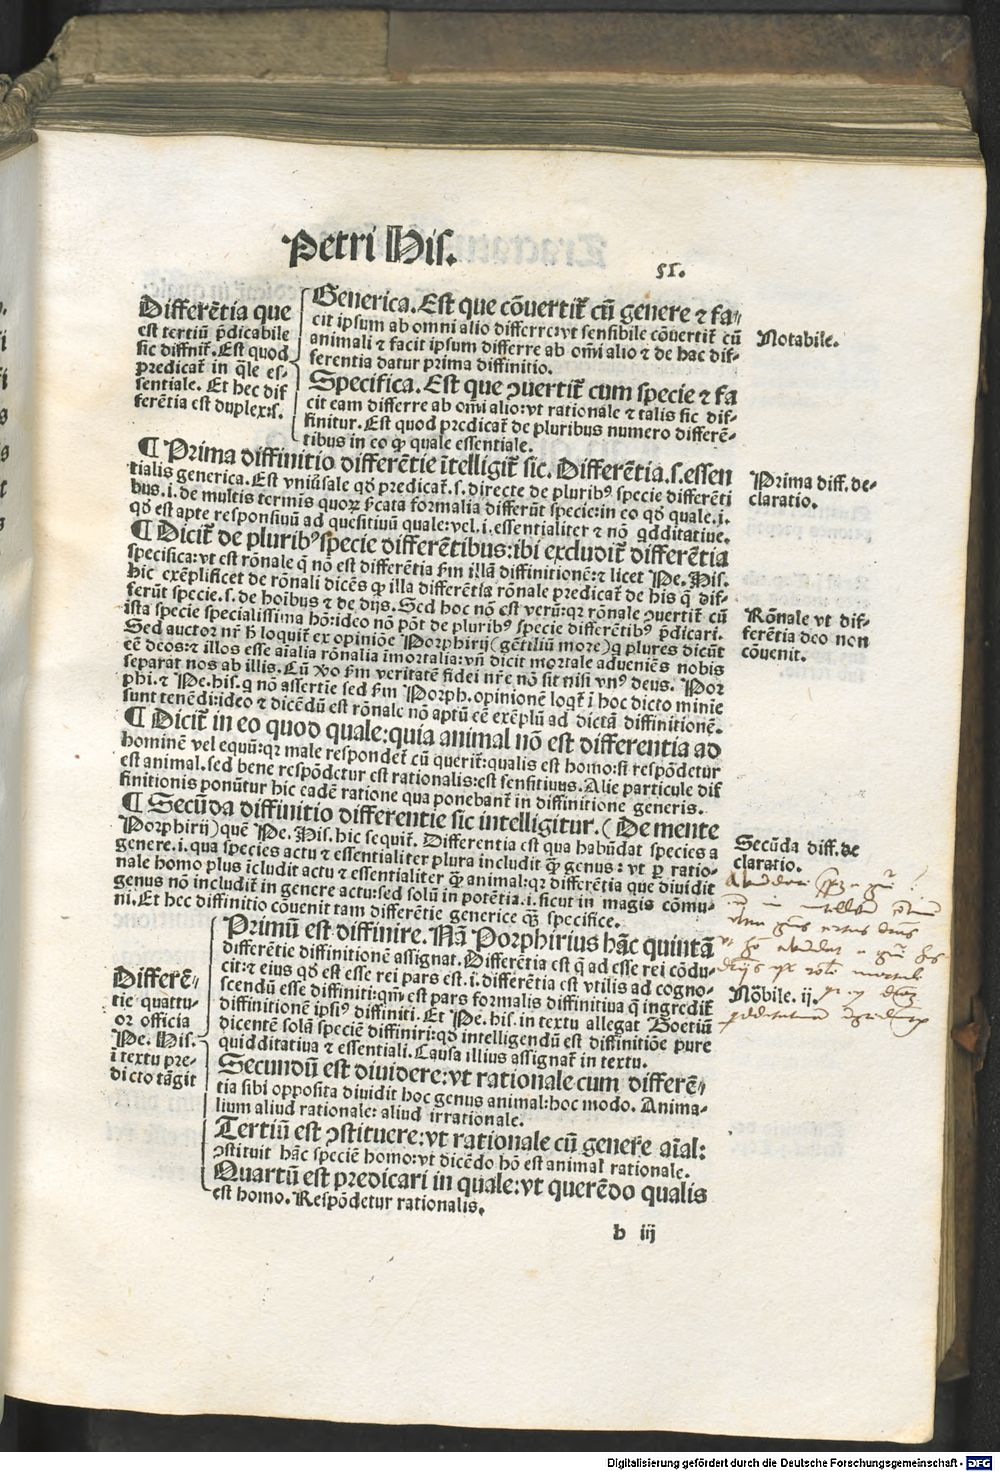 Petri His.
51.
Differētia que
est tertiū p̄dicabile
sic diffinit᷑. Est quod
predicat᷑ in q̄le es-
sentiale. Et hec dif
ferētia est duplex:s.
Generica. Est que cōuertit᷑ cū genere ⁊ fa-
cit ipsum ab omni alio differre:vt sensibile cōuertit᷑ cū
animali ⁊ facit ipsum differre ab om̄i alio ⁊ de hac dif-
ferentia datur prima diffinitio.
Specifica. Est que ꝯuertit᷑ cum specie ⁊ fa
cit eam differre ab om̄i alio:vt rationale ⁊ talis sic dif-
finitur. Est quod predicat᷑ de pluribus numero differē-
tibus in eo ꝙ quale essentiale.
Notabile.
¶ Prima diffinitio differētie ītelligit᷑ sic. Differētia.s.essen
tialis generica. Est vniūsale qd̄ predicat᷑.s. directe de plurib⁹ specie differēti
bus.i. de multis termis quoꝝ p̄cata formalia differūt specie:in eo qd̄ quale.i.
qd̄ est apte responsiuū ad quesitiuū quale:vel.i.essentialiter ⁊ nō qdditatiue.
Prima diff. de-
claratio.
¶ Dicit᷑ de plurib⁹ specie differētibus:ibi excludit᷑ differētia
specifica:vt est rōnale q̄ nō est differētia ẜm illā diffinitionē:⁊ licet Pe. His.
hic exēplificet de rōnali dicēs ꝙ illa differētia rōnale predicat᷑ de his q̄ dif-
ferūt specie.s. de hoībus ⁊ de dijs. Sed hoc nō est verū:qꝛ rōnale ꝯuertit᷑ cū
ista specie specialissima hō:ideo nō pōt de plurib⁹ specie differētib⁹ p̄dicari.
Sed auctor nr̄ h̄ loquit᷑ ex opiniōe Porphirij (gētiliū more) q̄ plures dicūt
eē deos:⁊ illos esse aīalia rōnalia īmortalia:vn̄ dicit mortale adueniēs nobis
separat nos ab illis. Cū ꝟo ẜm veritatē fidei nr̄e nō sit nisi vn⁹ deus. Por
phi. ⁊ Pe.his. q̄ nō assertīe sed ẜm Porph. opinionē loqt᷑ ī hoc dicto minīe
sunt tenēdi:ideo ⁊ dicēdū est rōnale nō aptū eē exēplū ad dictā diffinitionē.
Rōnale vt dif-
ferētia deo non
cōuenit.
¶ Dicit᷑ in eo quod quale:quia animal nō est differentia ad
hominē vel equū:qꝛ male respondet᷑ cū querit᷑:qualis est homo:si respōdetur
est animal.sed bene respōdetur est rationalis:est sensitiuus. Alie particule dif
finitionis ponūtur hic eadē ratione qua ponebant᷑ in diffinitione generis.
¶ Secūda diffinitio differentie sic intelligitur. (De mente
Porphirij) quē Pe. His. hic sequit᷑. Differentia est qua habūdat species a
genere.i. qua species actu ⁊ essentialiter plura includit ꝙ̄ genus: vt ꝑ ratio-
nale homo plus īcludit actu ⁊ essentialiter ꝙ̄ animal:qꝛ differētia que diuidit
genus nō includit᷑ in genere actu:sed solū in potētia.i. sicut in magis cōmu-
ni. Et hec diffinitio cōuenit tam differētie generice ꝙ̄ specifice.
Secūda diff. de
claratio.
Differē-
tie quattu-
or officia
Pe. His.
ī textu pre-
dicto tāgit
Primū est diffinire. Nā Porphirius hāc quintā
differētie diffinitionē assignat. Differētia est q̄ ad esse rei cōdu-
cit:⁊ eius qd̄ est esse rei pars est.i. differētia est vtilis ad cogno-
scendū esse diffiniti:qm̄ est pars formalis diffinitiua q̄ ingredit᷑
diffinitionē ipsi⁹ diffiniti. Et Pe. his. in textu allegat Boetiū
dicentē solā speciē diffiniri:qd̄ intelligendū est diffinitiōe pure
quidditatiua ⁊ essentiali. Causa illius assignat᷑ in textu.
Secundū est diuidere:vt rationale cum differē-
tia sibi opposita diuidit hoc genus animal:hoc modo. Anima-
lium aliud rationale: aliud irrationale.
Tertiū est ꝯstituere:vt rationale cū genere aīal:
ꝯstituit hāc speciē homo:vt dicēdo hō est animal rationale.
Quartū est predicari in quale:vt querēdo qualis
est homo. Respōdetur rationalis.
Nōbile. ij.
b iij
Digitalisierung gefördert durch die Deutsche Forschungsgemeinschaft - DFG